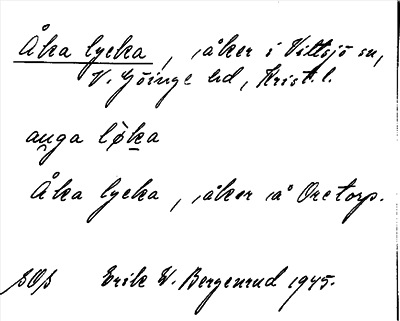 Åka lycka, åker i Vittsjö sn,
V. Göinge hd, Krist. l.
auga løka
Åka lycka, åker å Oretorp.
Erik W. Bergenrud 1945.